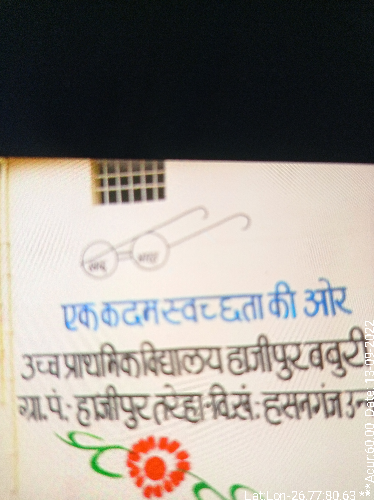 स्वच्छ भारत
एक कदम स्वच्छता की ओर
उच्च प्राथमिक विद्यालय हाजीपुर बबुरी
ग्रा.पं.- हाजीपुर तरेहा-वि.खं.: हसनगंज उन्
Lat Lon-26.77:80.63 ***
***Acur:60.00 Date:13-09-2022